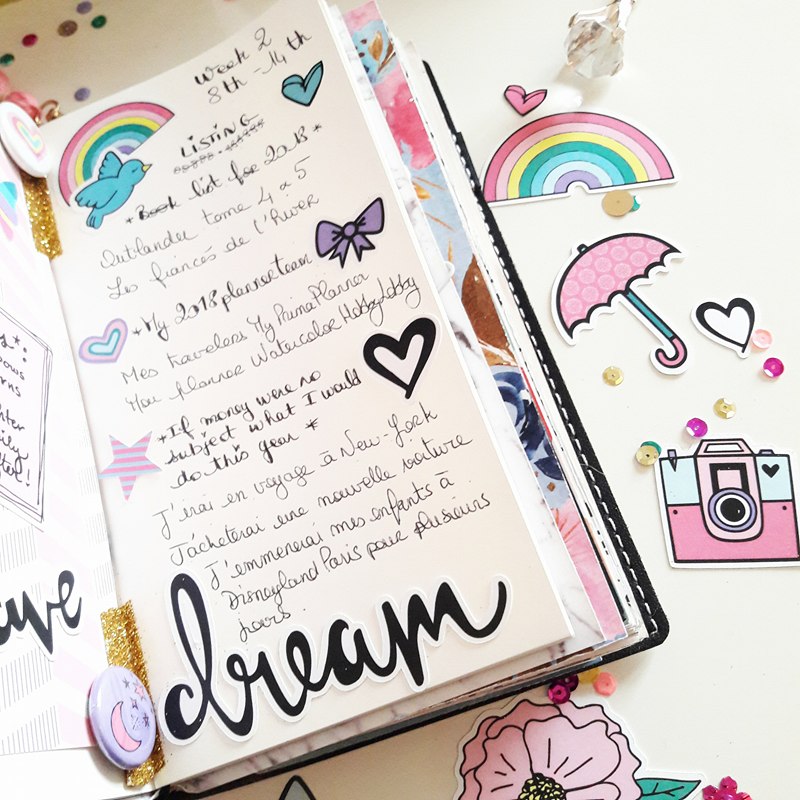 Week 2
8th - 14th
LISTING
*Book list for 2018*
Outlander tome 4 & 5
Les fiancés de l'hiver
*My 2018 planner team
Mes travelers My Prima Planner
You planner Watercolor HobbyLobby
*If money were no
subject what I would
do this year *
J'irai en voyage à New-York
J'achèterai une nouvelle voiture
J'emmènerai mes enfants à
Disneyland Paris pour plusieurs
jours.
dream